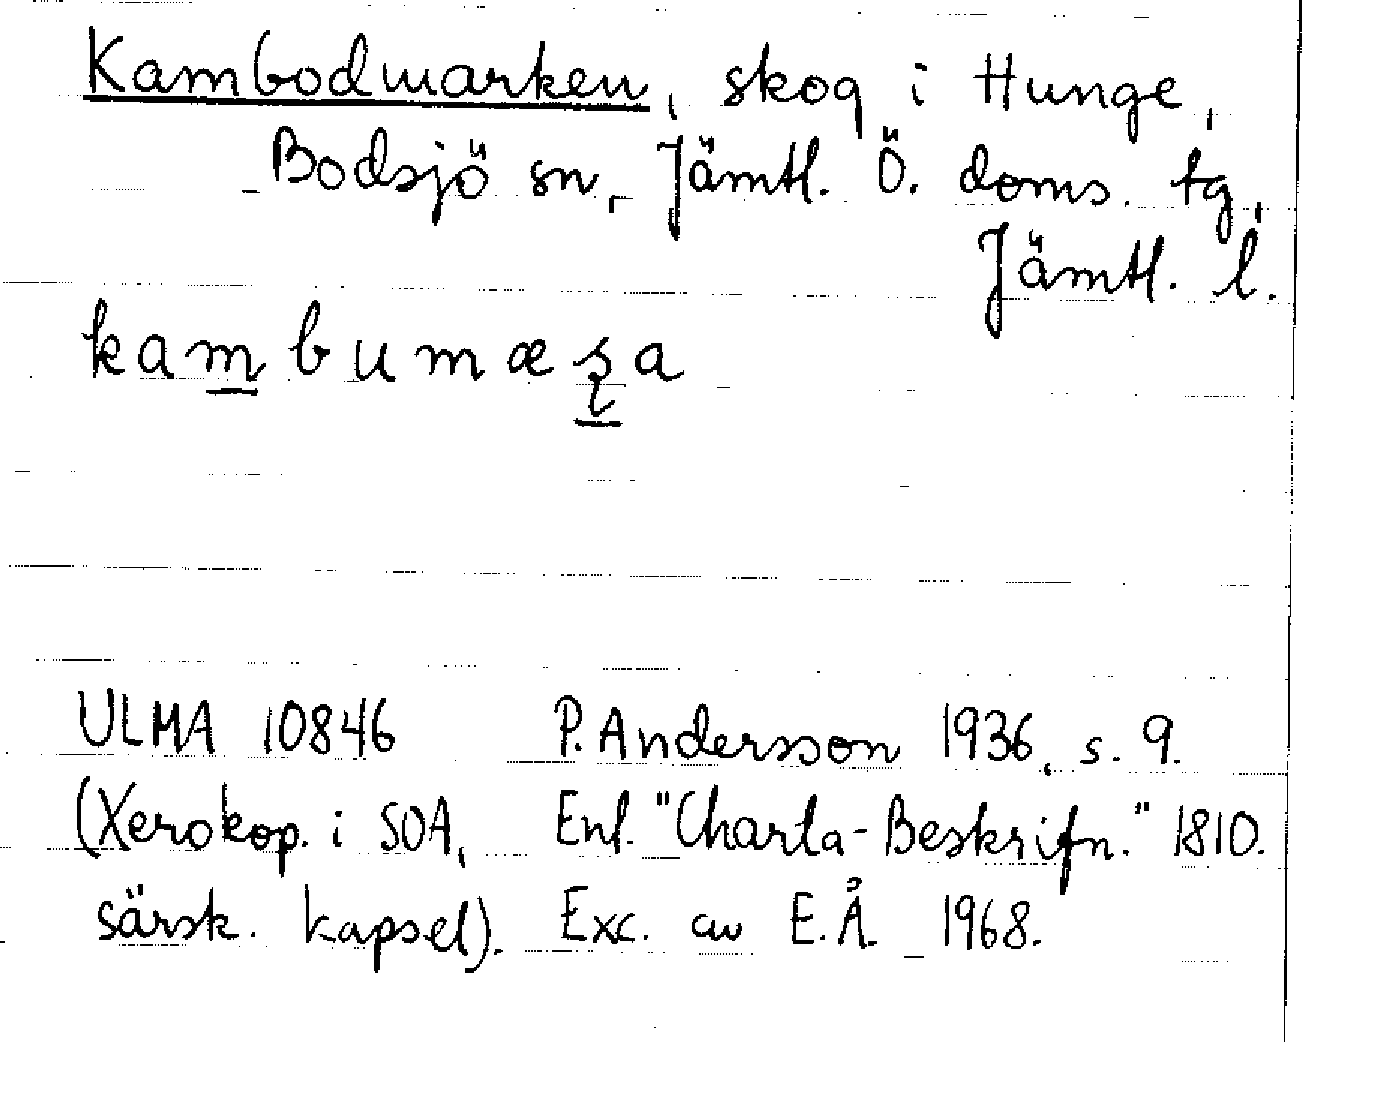 Kambodmarken, skog i Hunge,
Bodsjö sn, Jämtl. Ö. doms. tg,
Jämtl. l.
kambumæʂa
ULMA 10846 P. Andersson 1936, s. 9.
(Xerokop. i SOA, Enl. "Charta-Beskrifn." 1810.
särsk. kapsel). Exc. av E.Å. 1968.